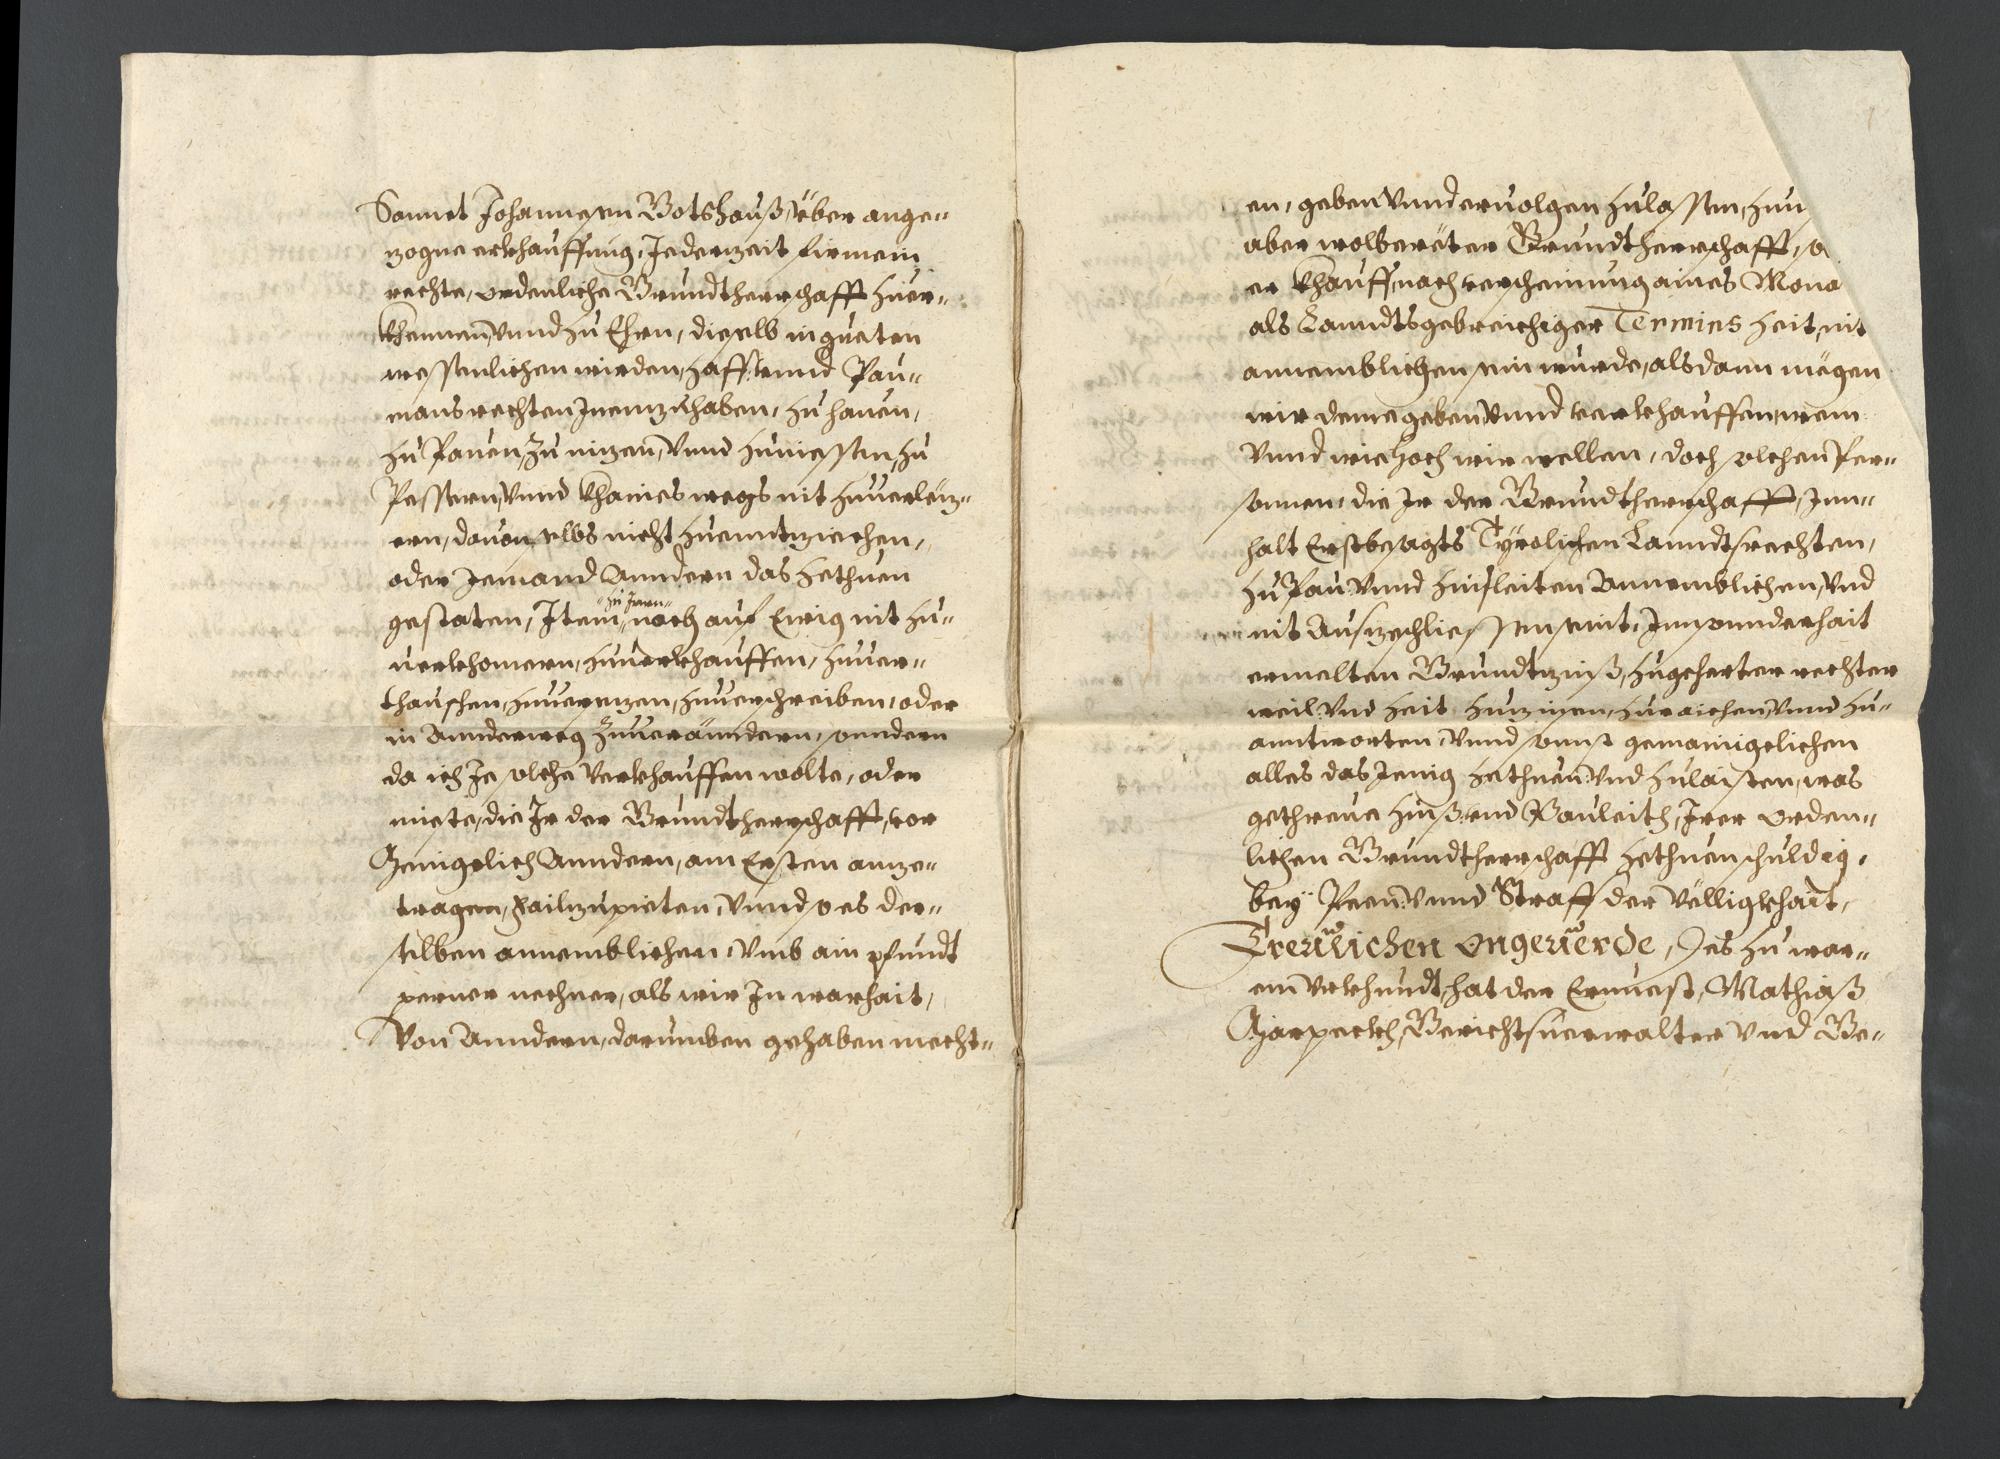 Sannet Johannesen Gotshauß, über ange-
zogne erkhauffung, Jederzeit für mein
rechte, ordenliche Grundtherrschafft zuer-
khennen, vnnd zu Ehrn, dieselb in gueten
wesstenlichen wirden, hafft vnnd Pau-
mans rechten Innenzuhaben, zu hauen,
zu Pauen, zu nizen, vnnd zuniessen, zu
Pessern, vnnd khaines wegs nit zuuerleuz-
ern, dauon selbs nicht zuenntziechen,
oder Jemand Anndern das zethuen
gestaten, Item,
"zu Jrem"
noch auf Ewig nit zu-
uerkhomern, zuuerkhauffen, zuuer-
thauschen, zuuersezen, zuuerschreiben, oder
in Annderweg zuueränndern, sonndern
da ich Je solche Verkhauffen wolte, oder
mieste, die Ir der Grundtherrschafft, vor
Menigelich Anndern, am Ersten anze-
tragen, failzupieten, vnnd so es der-
selben annemblichen, vmb ain pfundt
perner nechner, als wir In warhait,
Von Anndern, darumben gehaben mecht-
en, geben vnnd eruolgen zulassen, zun
aber wolbereter Grundtherrschafft, 
er khauff, nach verscheinung aines Mona
als Lanndtsgebreichiger Termins zeit, nit
annemblichen sein wurde, alsdann mögen
wir deme geben, vnnd verkhauffen, wem
Vnnd wie hoch wir wellen, doch solchen Per-
sonnen, die Ir der Grundtherrschafft, Inn-
halt Erstbesagts Tyrolischen Lanndtsrechten,
zu Pau vnnd Zinsleiten Annemblichen, vnd
nit Auszeschliessen seint, Innsonnderhait
ermelten Grundtzinß, zugeherter rechter
weil vnd zeit zuzinsen, zuraichen, vnnd zu-
anntworten, vnnd sonst gemainigelichen
alles das Jenig zethuen vnd zulaisten, was
gethreue Zinß vnd Pauleith, Irer orden-
lichen Grundtherrschafft zethuen schuldig,
bey Peen vnnd Straff der Völligkhait,
Treulichen ongeuerde, Des zu war-
em Vrkhundt, hat der Ernuesst, Mathiaß
Gerichtsuerwalter vnd Ge-